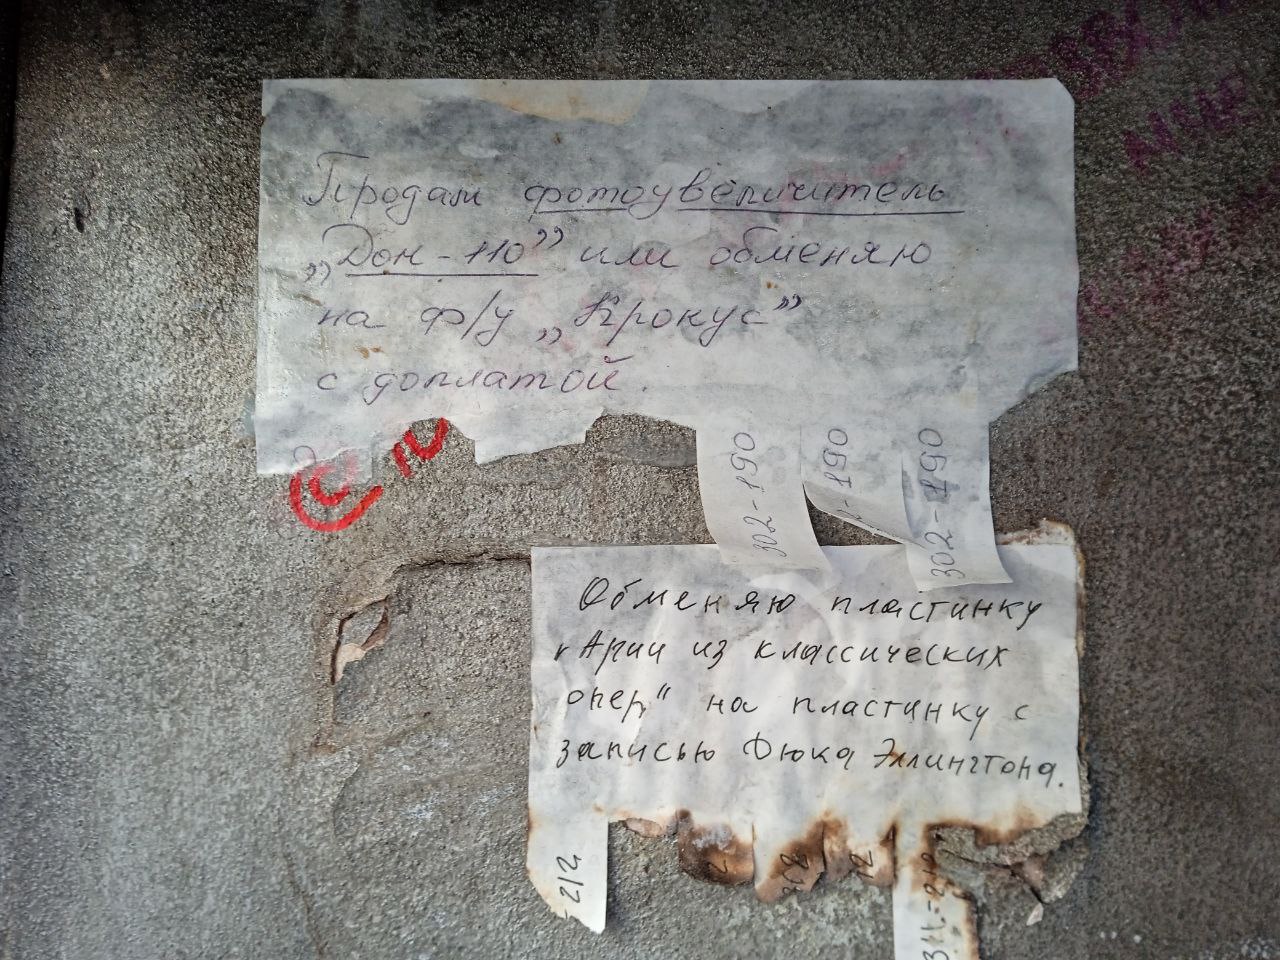 Продам фотоувеличитель
„Дон-110” или обменяю
на ф/у „Крокус”
с доплатой.
302-190
-190
302-190
Обменяю пластинку
"Арии из классических
опер" на пластинку с
записью Дюка Эллингтона.
212